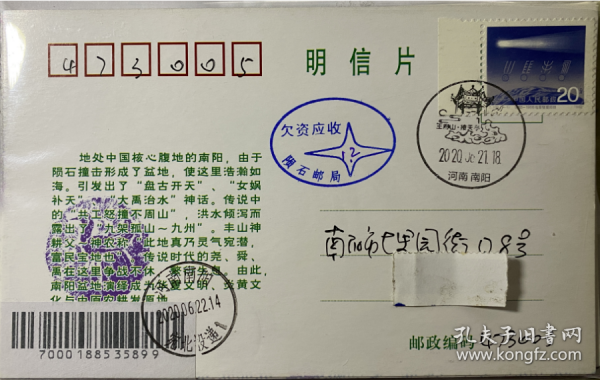 473005
明信片
中国人民邮政
20
欠资应收
2
陨石邮局
2020.06.21.18
河南 南阳
地处中国核心腹地的南阳，由于
陨石撞击形成了盆地，使这里浩瀚如
海。引发出了“盘古开天”、“女娲
补天”、“大禹治水”神话。传说中
的“共工怒撞不周山”，洪水倾泻而
露出了“九架孤山～九州”。丰山神
耕父、神农称“此地真乃灵气宛潜，
富民宝地也”。传说时代的尧、舜、
禹在这里争战不休、繁衍生息。由此，
南阳盆地演绎成为华夏文明、炎黄文
化与中原农耕发源地。
2020.06.22.14
7000188535899
邮政编码
孔夫子旧书网
www.kongfz.com